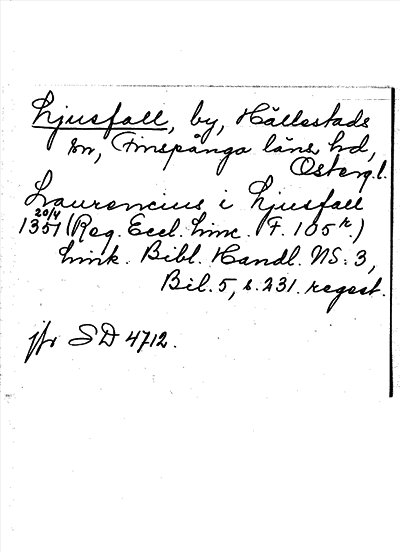 Ljusfall, by, Hällestads
sn, Finspånga läns hd,
Österg.l.
Laurencius i Ljusfall
20/4
1351 (Reg. Eccl. Linc. F. 105 r.)
Link. Bibl. Handl. NS: 3,
Bil. 5, s. 231. regest.
jfr SD 4712.